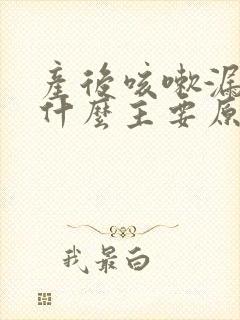 產後咳嗽漏
什麼主要原
我最白